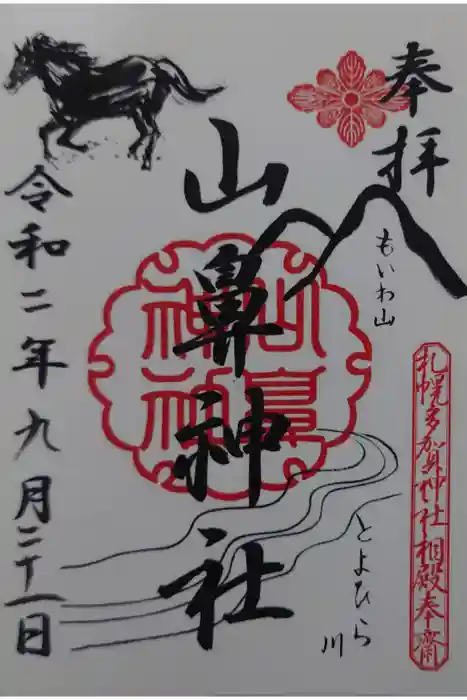 奉拝
もいわ山
札幌多賀神社相殿奉齋
山鼻神社
山鼻神社
とよひら川
令和二年九月二十一日